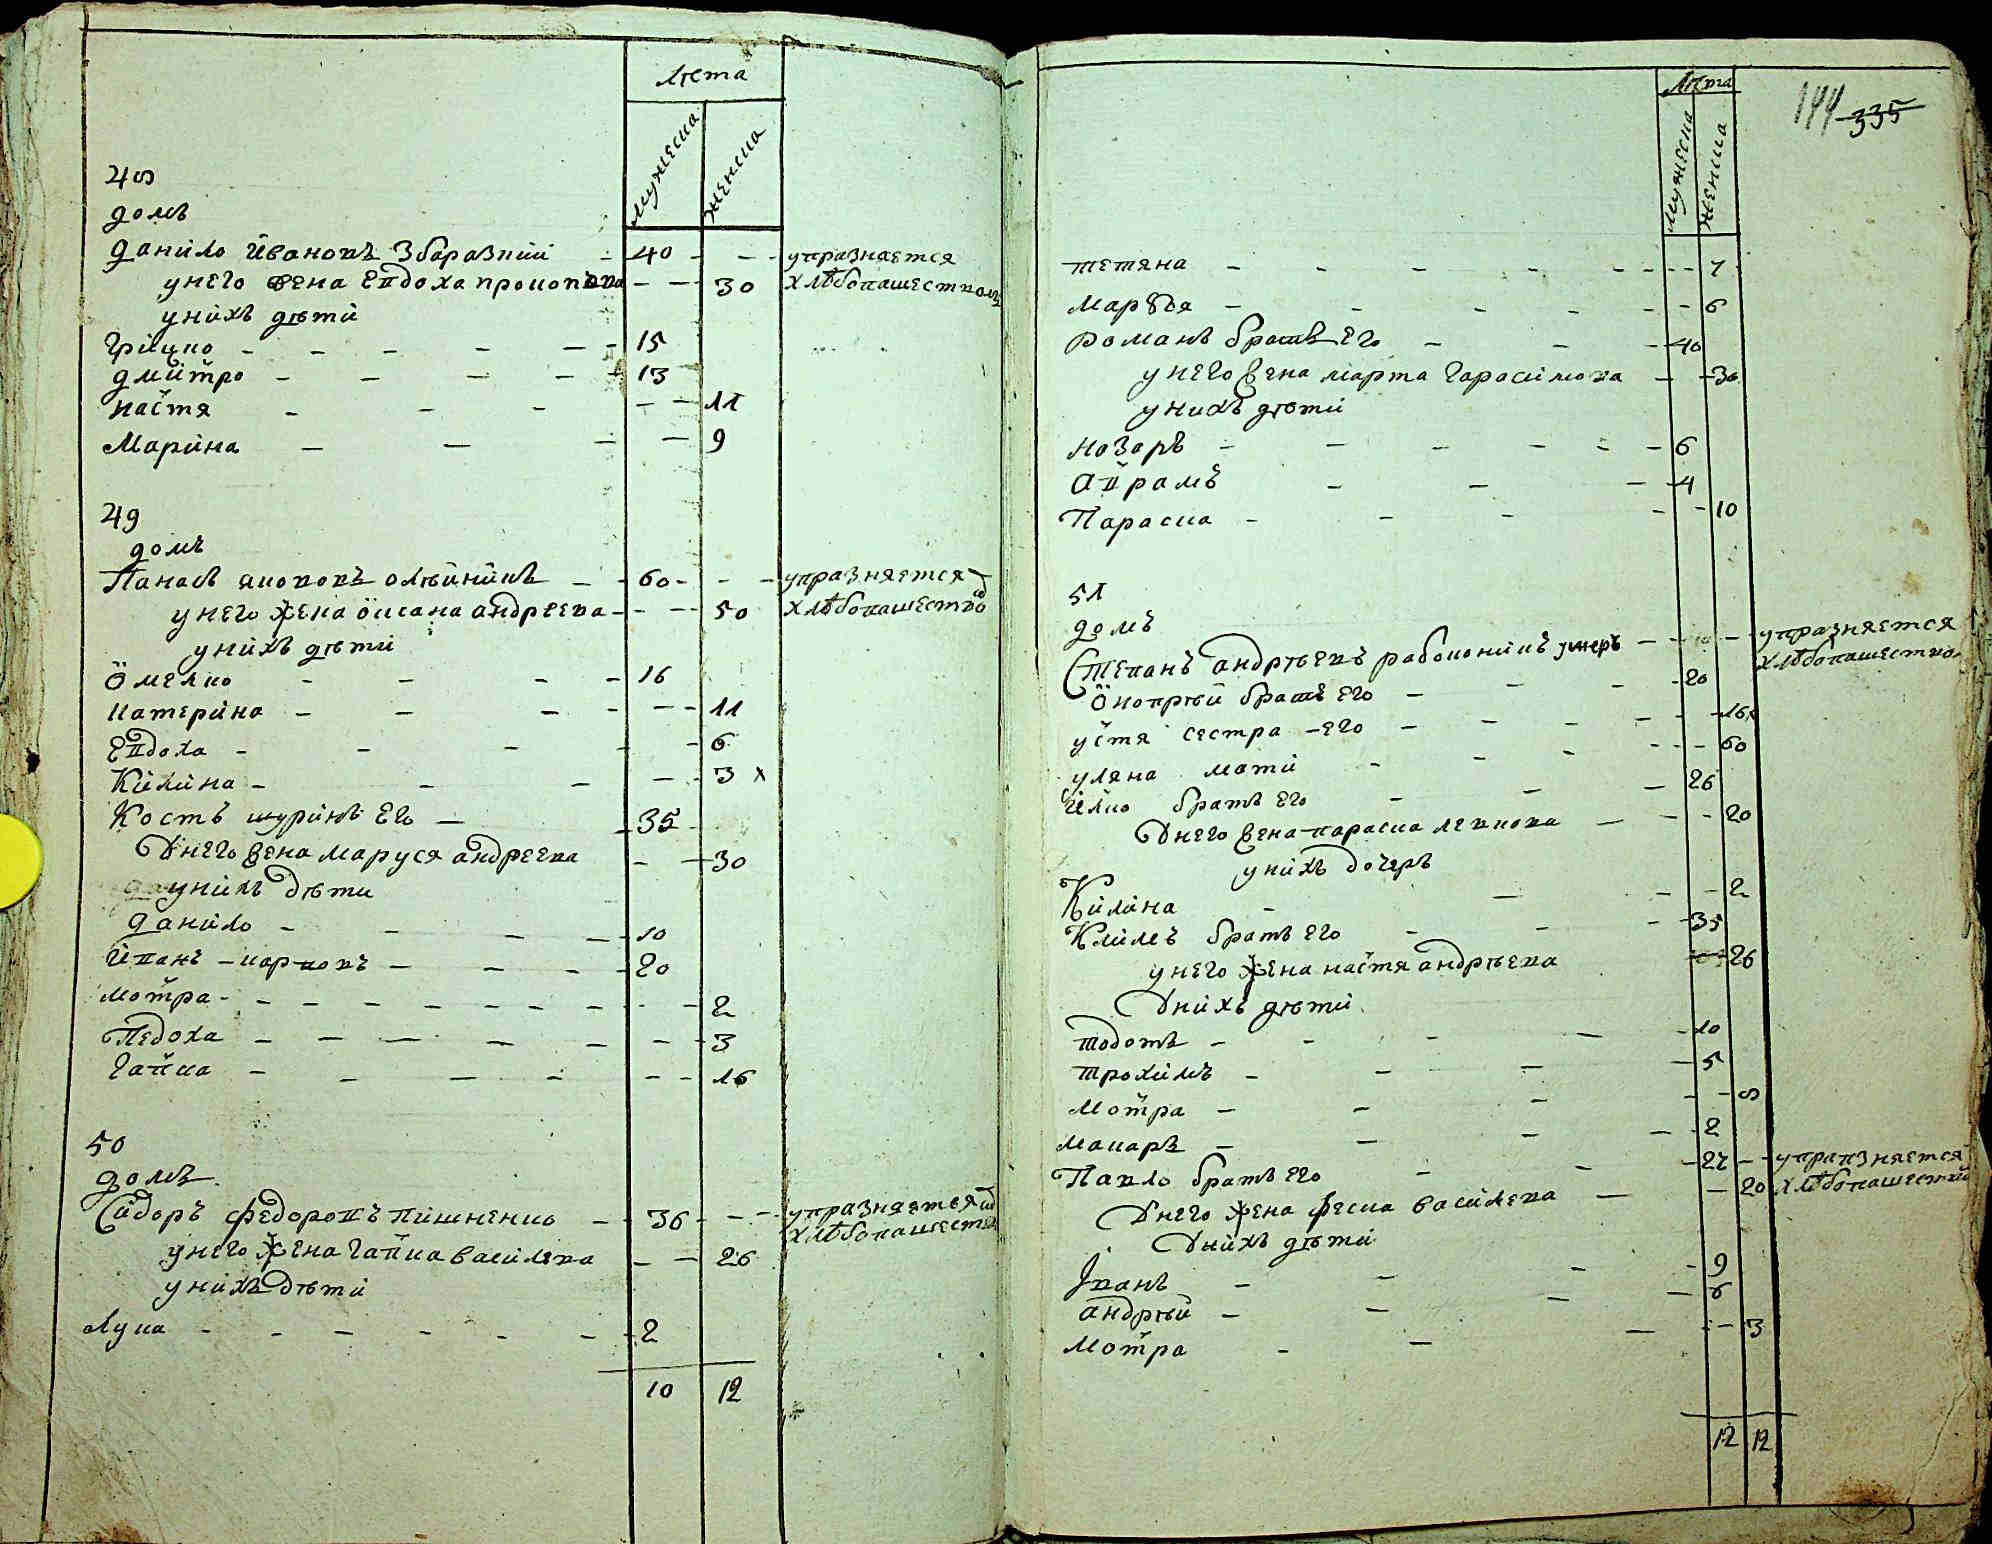 лѣта
мужеска
женска
48
домъ
данило йвановъ Збаразкий 40 упразнается
унего жена Евдоха прокопова 30 хлѣбопашествомъ
унихъ дѣти
Грицко 15
дмитро 13
настя 11
Марина 9
49
домъ
Панасъ якововъ олѣйникъ 60 упразняется
унего жена оксана андреева 50 хлѣбопашество
унихъ дѣти
омелко 16
катерина 11
Евдоха 6
Килина 3 х
Кость шуринъ Его 35
Унего жена маруся андреева 30
унихъ дѣти
данило 10
йванъ карповъ 20
мотра 2
Педоха 3
гапка 16
50
домъ
Сидоръ федоровъ пишненко 36 упразняется
унего жена гапка василева 26 хлѣбопашество
унихъ дѣти
лука 2
10 12
144 335
лѣта
мужеска
женска
тетяна 7
маръя 6
романъ братъ его 40
унего жена марта гарасимова 30
унихъ дѣти
назаръ 6
аврамъ 4
Параска 10
51
домъ
Степанъ андрѣевъ умеръ упразняется
хлѣбопашество
онопрѣй братъ его 20
устя сестра его 16
уляна мати 60
илко братъ его 26
Унего жена параска левкова 20
унихъ дочеръ
Килина 2
Климъ братъ его 35
унего жена настя андрѣева 26
Унихъ дѣти
тодотъ 10
трохимъ 5
мотра 8
макаръ 2
Павло братъ его 27 упразняется
Унего жена феска василева 20 хлѣбопашество
Унихъ дѣти
Іванъ 9
андрѣй 6
мотра 3
12 12